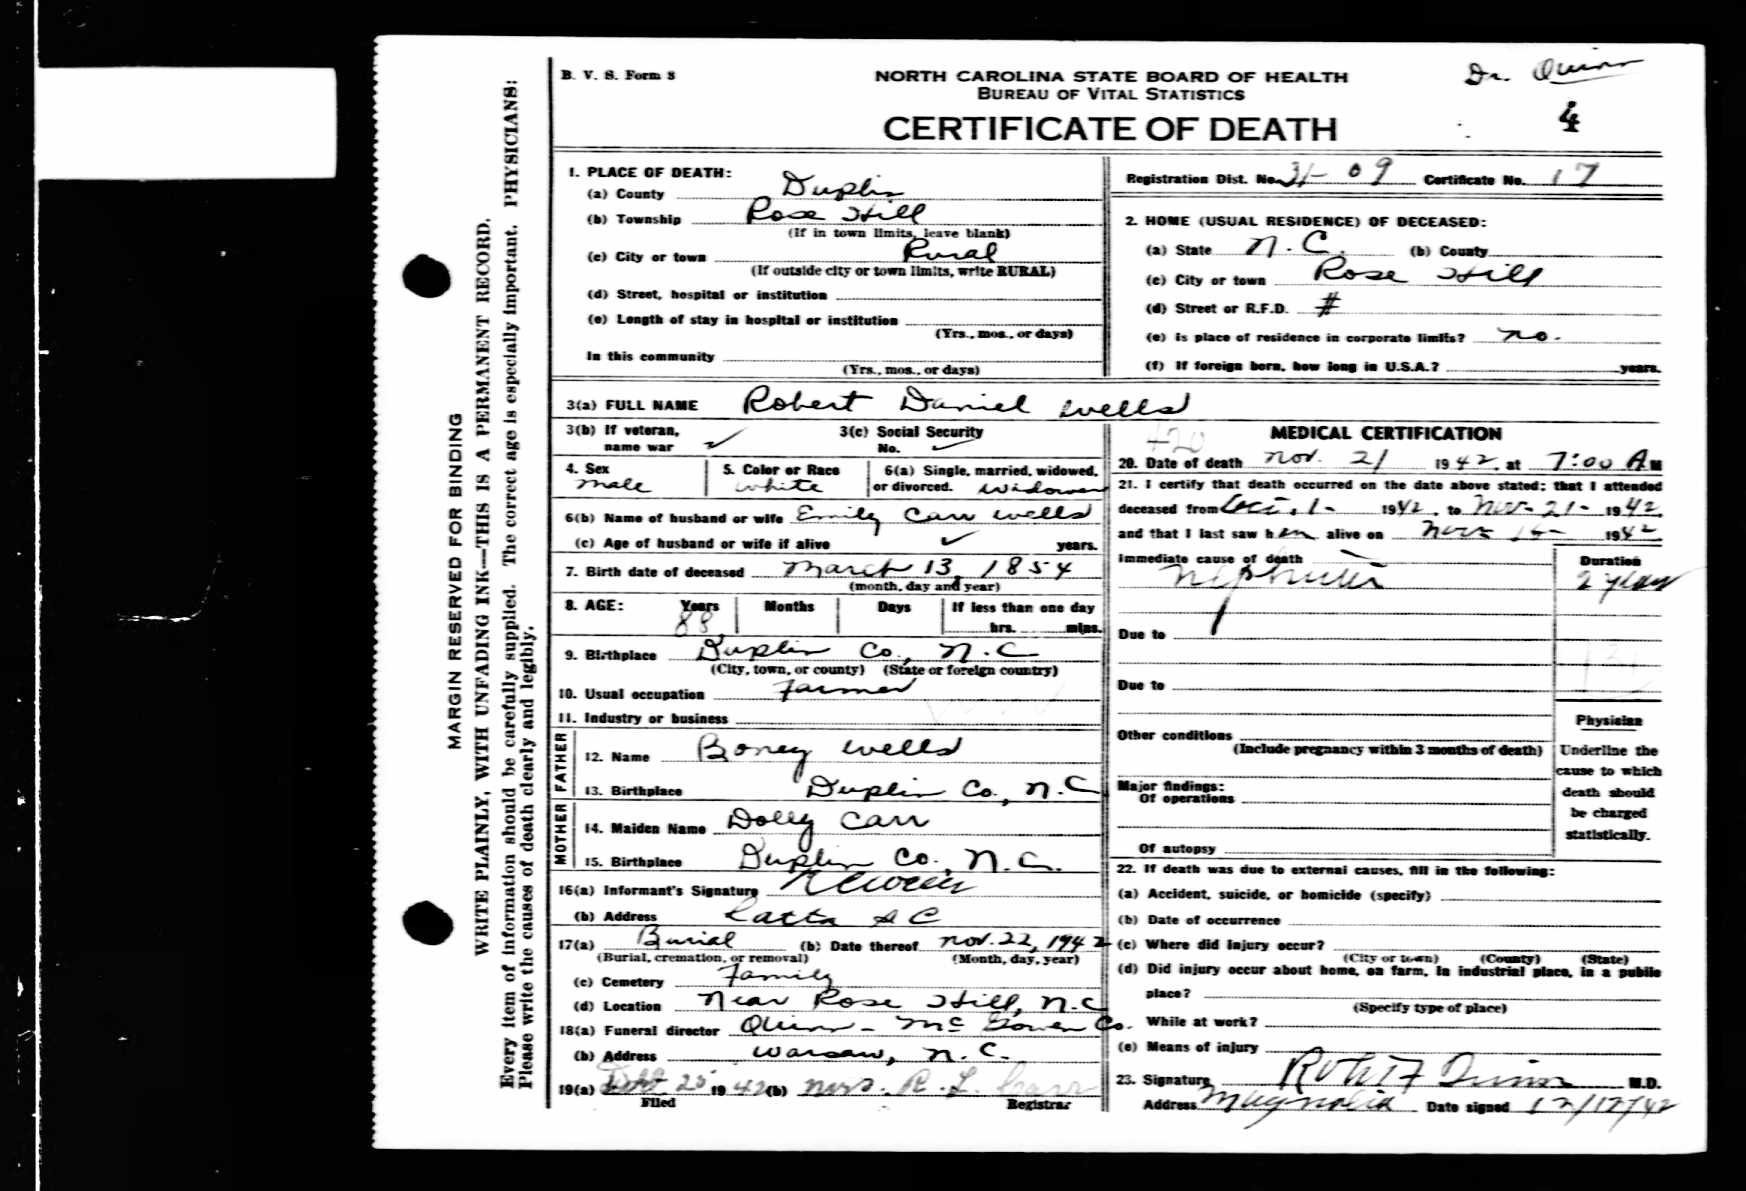 B. V. S. Form 8
NORTH CAROLINA STATE BOARD OF HEALTH
BUREAU OF VITAL STATISTICS
CERTIFICATE OF DEATH
Dr. Quinn
4
MARGIN RESERVED FOR BINDING
WRITE PLAINLY, WITH UNFADING INK—THIS IS A PERMANENT RECORD.
Every item of information should be carefully supplied. The correct age is especially important. PHYSICIANS:
Please write the causes of death clearly and legibly.
1. PLACE OF DEATH:
(a) County Duplin
(b) Township Rose Hill
(If in town limits, leave blank)
(c) City or town Rural
(If outside city or town limits, write RURAL)
(d) Street, hospital or institution
(e) Length of stay in hospital or institution
(Yrs., mos., or days)
In this community
(Yrs., mos., or days)
Registration Dist. No. 31-09 Certificate No. 17
2. HOME (USUAL RESIDENCE) OF DECEASED:
(a) State N.C. (b) County
(c) City or town Rose Hill
(d) Street or R.F.D. #
(e) Is place of residence in corporate limits? no.
(f) If foreign born, how long in U.S.A.? years.
3(a) FULL NAME Robert Daniel Wells
3(b) If veteran, name war ✓
3(c) Social Security No. ✓
4. Sex male
5. Color or Race white
6(a) Single, married, widowed, or divorced. widower
6(b) Name of husband or wife Emily Carr Wells
(c) Age of husband or wife if alive ✓ years.
7. Birth date of deceased March 13, 1854
(month, day and year)
8. AGE: Years Months Days If less than one day
88 hrs. mins.
9. Birthplace Duplin Co., N.C
(City, town, or county) (State or foreign country)
10. Usual occupation Farmer
11. Industry or business
FATHER
12. Name Boney Wells
13. Birthplace Duplin Co., N.C
MOTHER
14. Maiden Name Dolly Carr
15. Birthplace Duplin Co. N.C.
16(a) Informant's Signature
(b) Address Latta S C
17(a) Burial (b) Date thereof Nov. 22, 1942
(Burial, cremation, or removal) (Month, day, year)
(c) Cemetery Family
(d) Location Near Rose Hill, N.C
18(a) Funeral director Quinn - McGowen Co.
(b) Address Warsaw, N.C.
19(a) 25 1942 (b) Mrs. R. L. Carr
Filed Registrar
MEDICAL CERTIFICATION
20. Date of death Nov. 21 1942, at 7:00 A M
21. I certify that death occurred on the date above stated; that I attended
deceased from Oct. 1- 1942, to Nov- 21- 1942,
and that I last saw h alive on Nov 1942
Immediate cause of death Duration
Nephritis 2 years
Due to
Due to
Other conditions
(Include pregnancy within 3 months of death)
Major findings:
Of operations
Of autopsy
Physician
Underline the
cause to which
death should
be charged
statistically.
22. If death was due to external causes, fill in the following:
(a) Accident, suicide, or homicide (specify)
(b) Date of occurrence
(c) Where did injury occur?
(City or town) (County) (State)
(d) Did injury occur about home, on farm, in industrial place, in a public
place?
(Specify type of place)
While at work?
(e) Means of injury
23. Signature Quinn M.D.
Address Magnolia Date signed 12/12/42